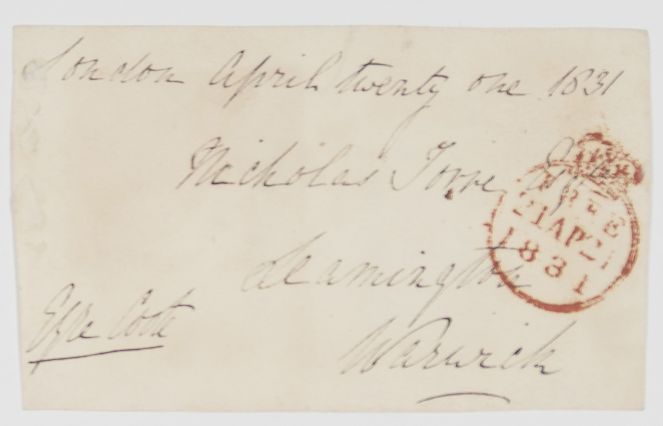 London April twenty one 1831
Nicholas Torre Esqr
Leamington
Warwick
Eyre Coote
FREE
21 AP 21
1831